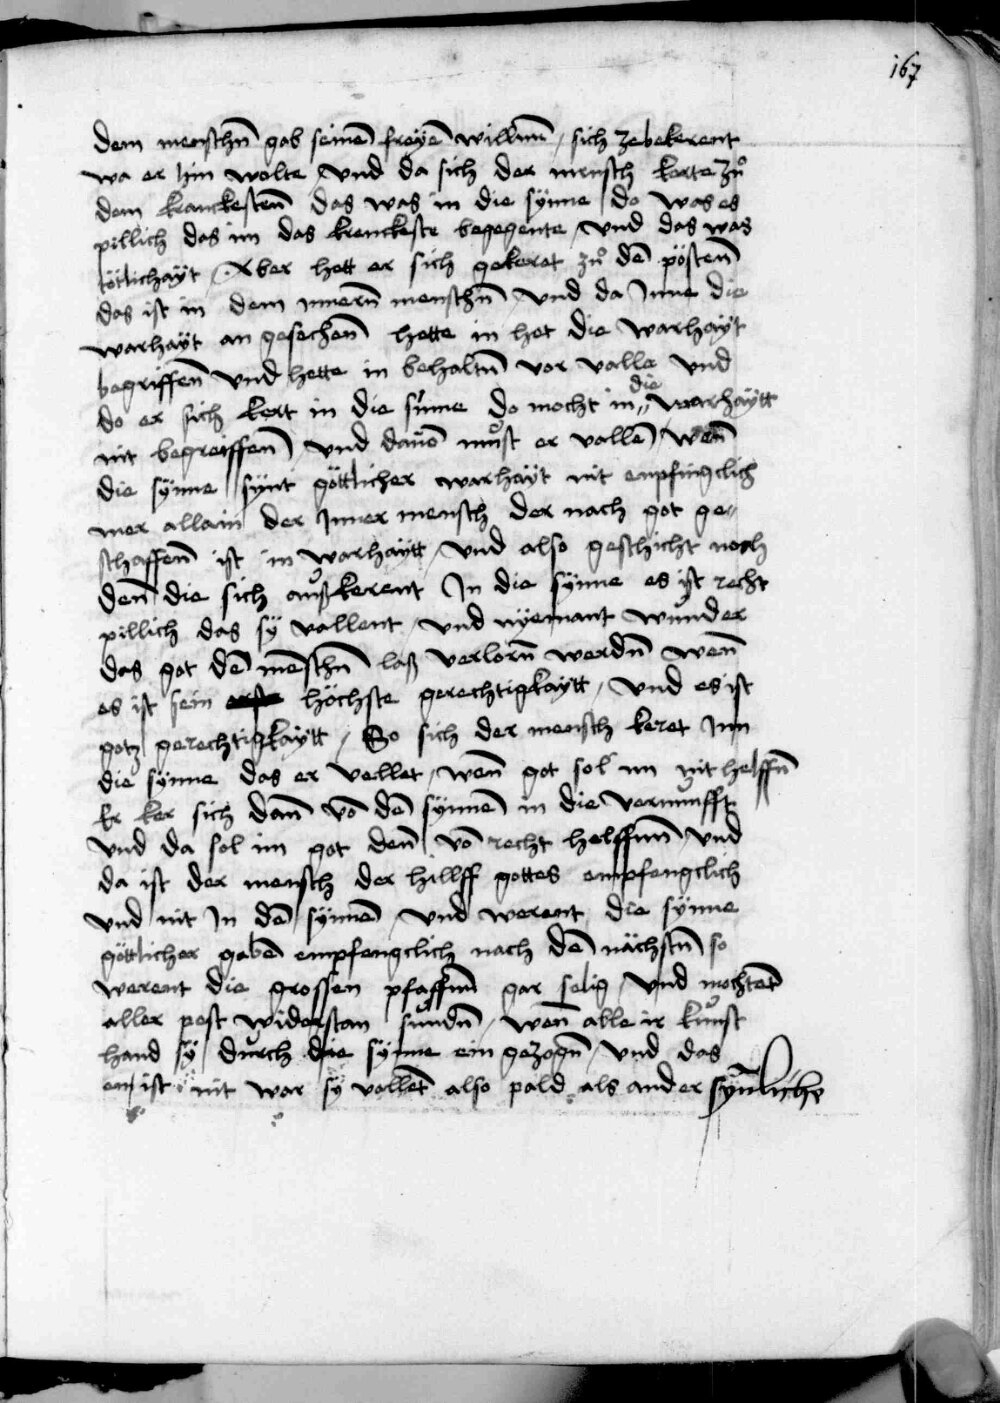 167
dem menschñ gab seinẽ freyẽ willmm / sich zebekerent
wa er hin wolte / Vnd da sich der mensch kerte zů
dem kranckestenñ das was in die synne do was es
pillich das im das krenckeste begegente / Vnd das was
tötlichayt / Aber hett er sich gekeret zů dẽ pöstenñ
das ist in dem innern̄ menschñ / Vnd da Inne die
warhayt an gesechenñ hette in het die warhayt
begriffenñ Vnd hette in behaltñ vor valle Vnd
do er sich kert in die sinne do mocht in die warhaytt
nit begreiffenñ / Vnd dauõ můst er vallẽ / Wenñ
die synne synt göttlicher warhayt nit enpfingclich
mer allain der Inner mensch der nach got ge„
schaffenñ ist in warhaytt / Vnd also geschicht noch
denñ die sich außkerent In die synne es ist recht
pillich das sy vallent / Vnd nyemant wunder
das got dẽ mẽschñ laß verlorn̄ werdñ wenñ
es ist sein höchste gerechtigkaytt / Vnd es ist
gotz gerechtigkaytt / So sich der mensch keret Inn
die synne das er vellet / wenñ got sol im nit helffñ
Er ker sich dañ võ dẽ synnẽ in die vernunfft
Vnd da sol im got denñ võ recht helffmm Vnd
da ist der mensch der hillff gottes empfengclich
Vnd nit In dẽ synnẽ / Vnd werent die synne
göttlicher gabẽ empfengclich nach dẽ nächstñ so
werent die grossen pfaffmm gar selig / Vnd mochtẽt
aller pest widerstan sundñ / wenñ alle ir kunst
hand sy durch die synne ein gezogñ / Vnd das
en ist nit war sy vallẽt also pald als ander syñliche